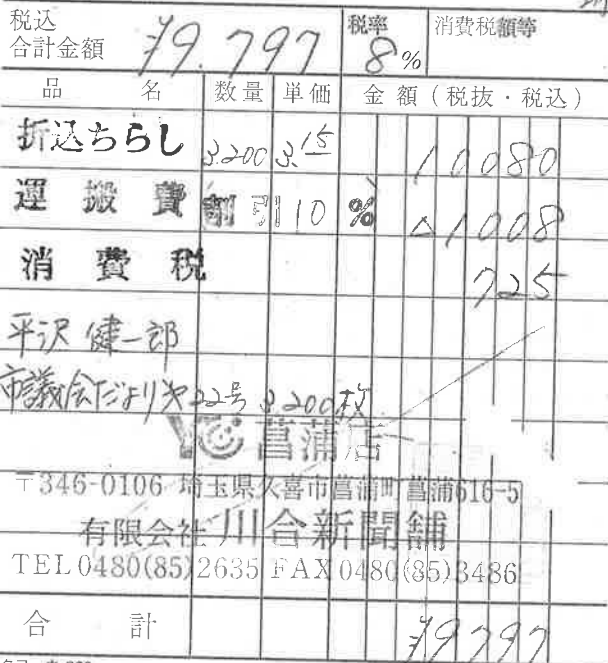 税込
合計金額 ¥9.797 税率 8% 消費税額等
品 名 数量 単価 金額(税抜・税込)
折込ちらし 3.200 3.15 10080
運搬費 割引10% △1008
消費税 725
平沢 健一郎
市議会だより 22号 3.200枚
YC 菖蒲店
〒346-0106 埼玉県久喜市菖蒲町菖蒲616-5
有限会社 川合新聞舗
TEL 0480(85)2635 FAX 0480(85)3486
合 計 ¥9797